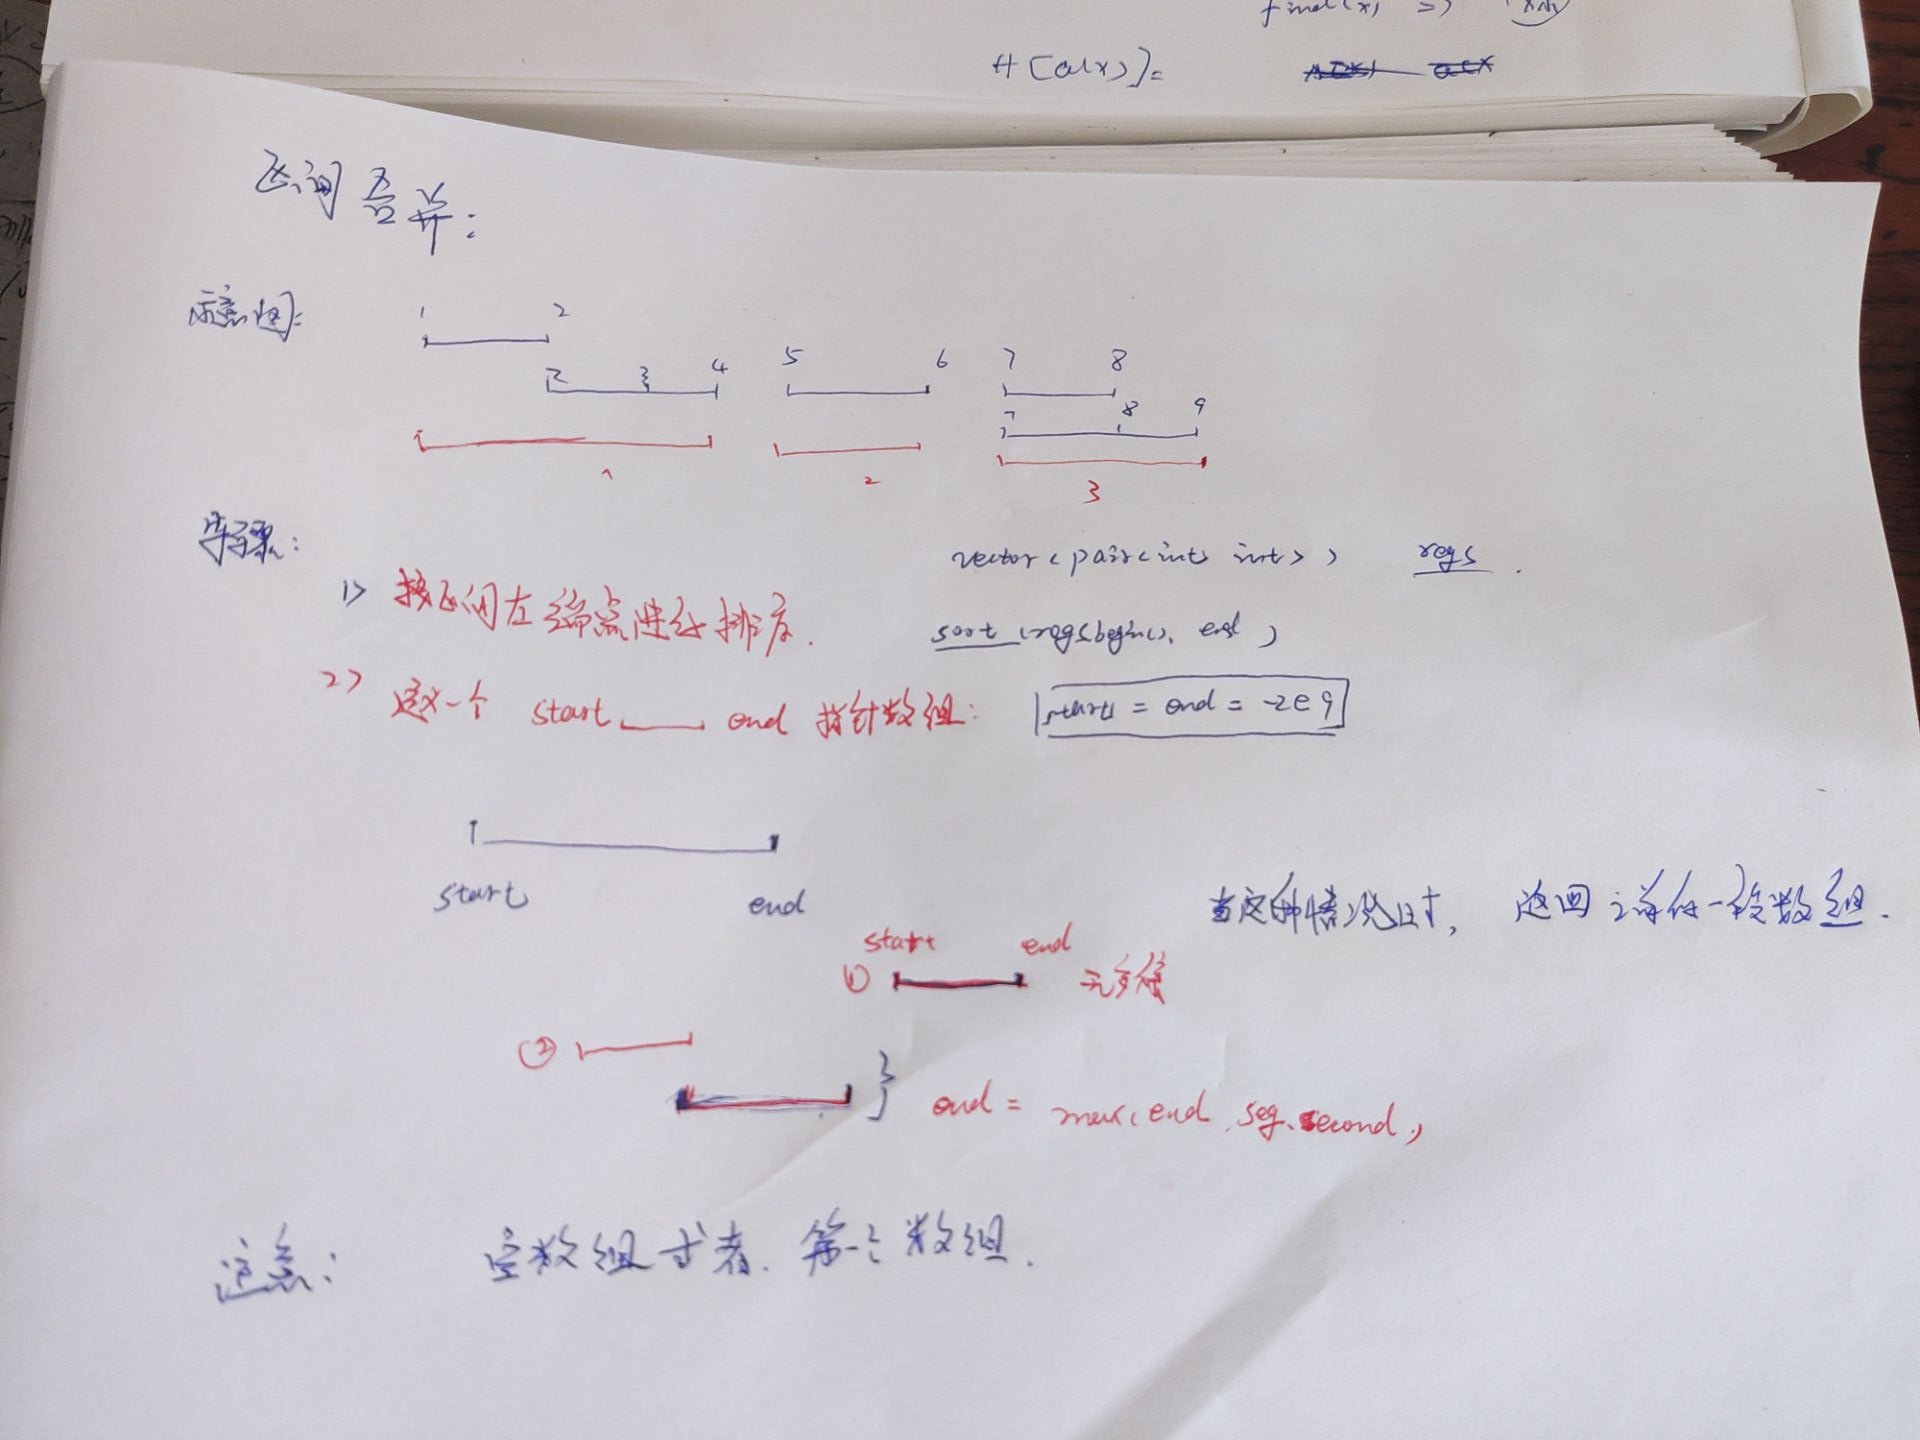 find(x) =>
H[a(x)]=
区间合并:
示意图:
1 2
2 3 4 5 6 7 8
7 8 9
1 2 3
步骤:
vector<pair<int int>> regs.
1> 按区间左端点进行排序.
sort(regs.begin(). end)
2> 定义一个 start end 指针数组: start = end = -2e9
start end
当这种情况时, 返回 前一段数组.
start end
① 无交集
②
} end = max(end, seg.second)
注意: 空数组或者. 第一个数组.